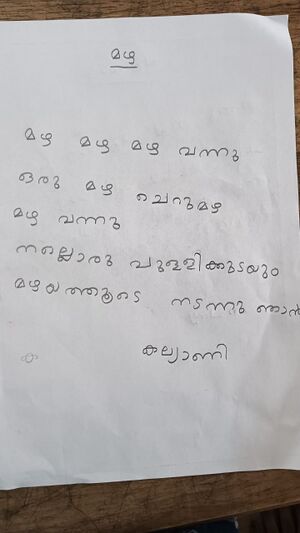 മഴ
മഴ മഴ മഴ വന്നു
ഒരു മഴ ചെറുമഴ
മഴ വന്നു
നല്ലൊരു പുള്ളിക്കുടയും
മഴയത്തൂടെ നടന്നു ഞാൻ
കല്യാണി